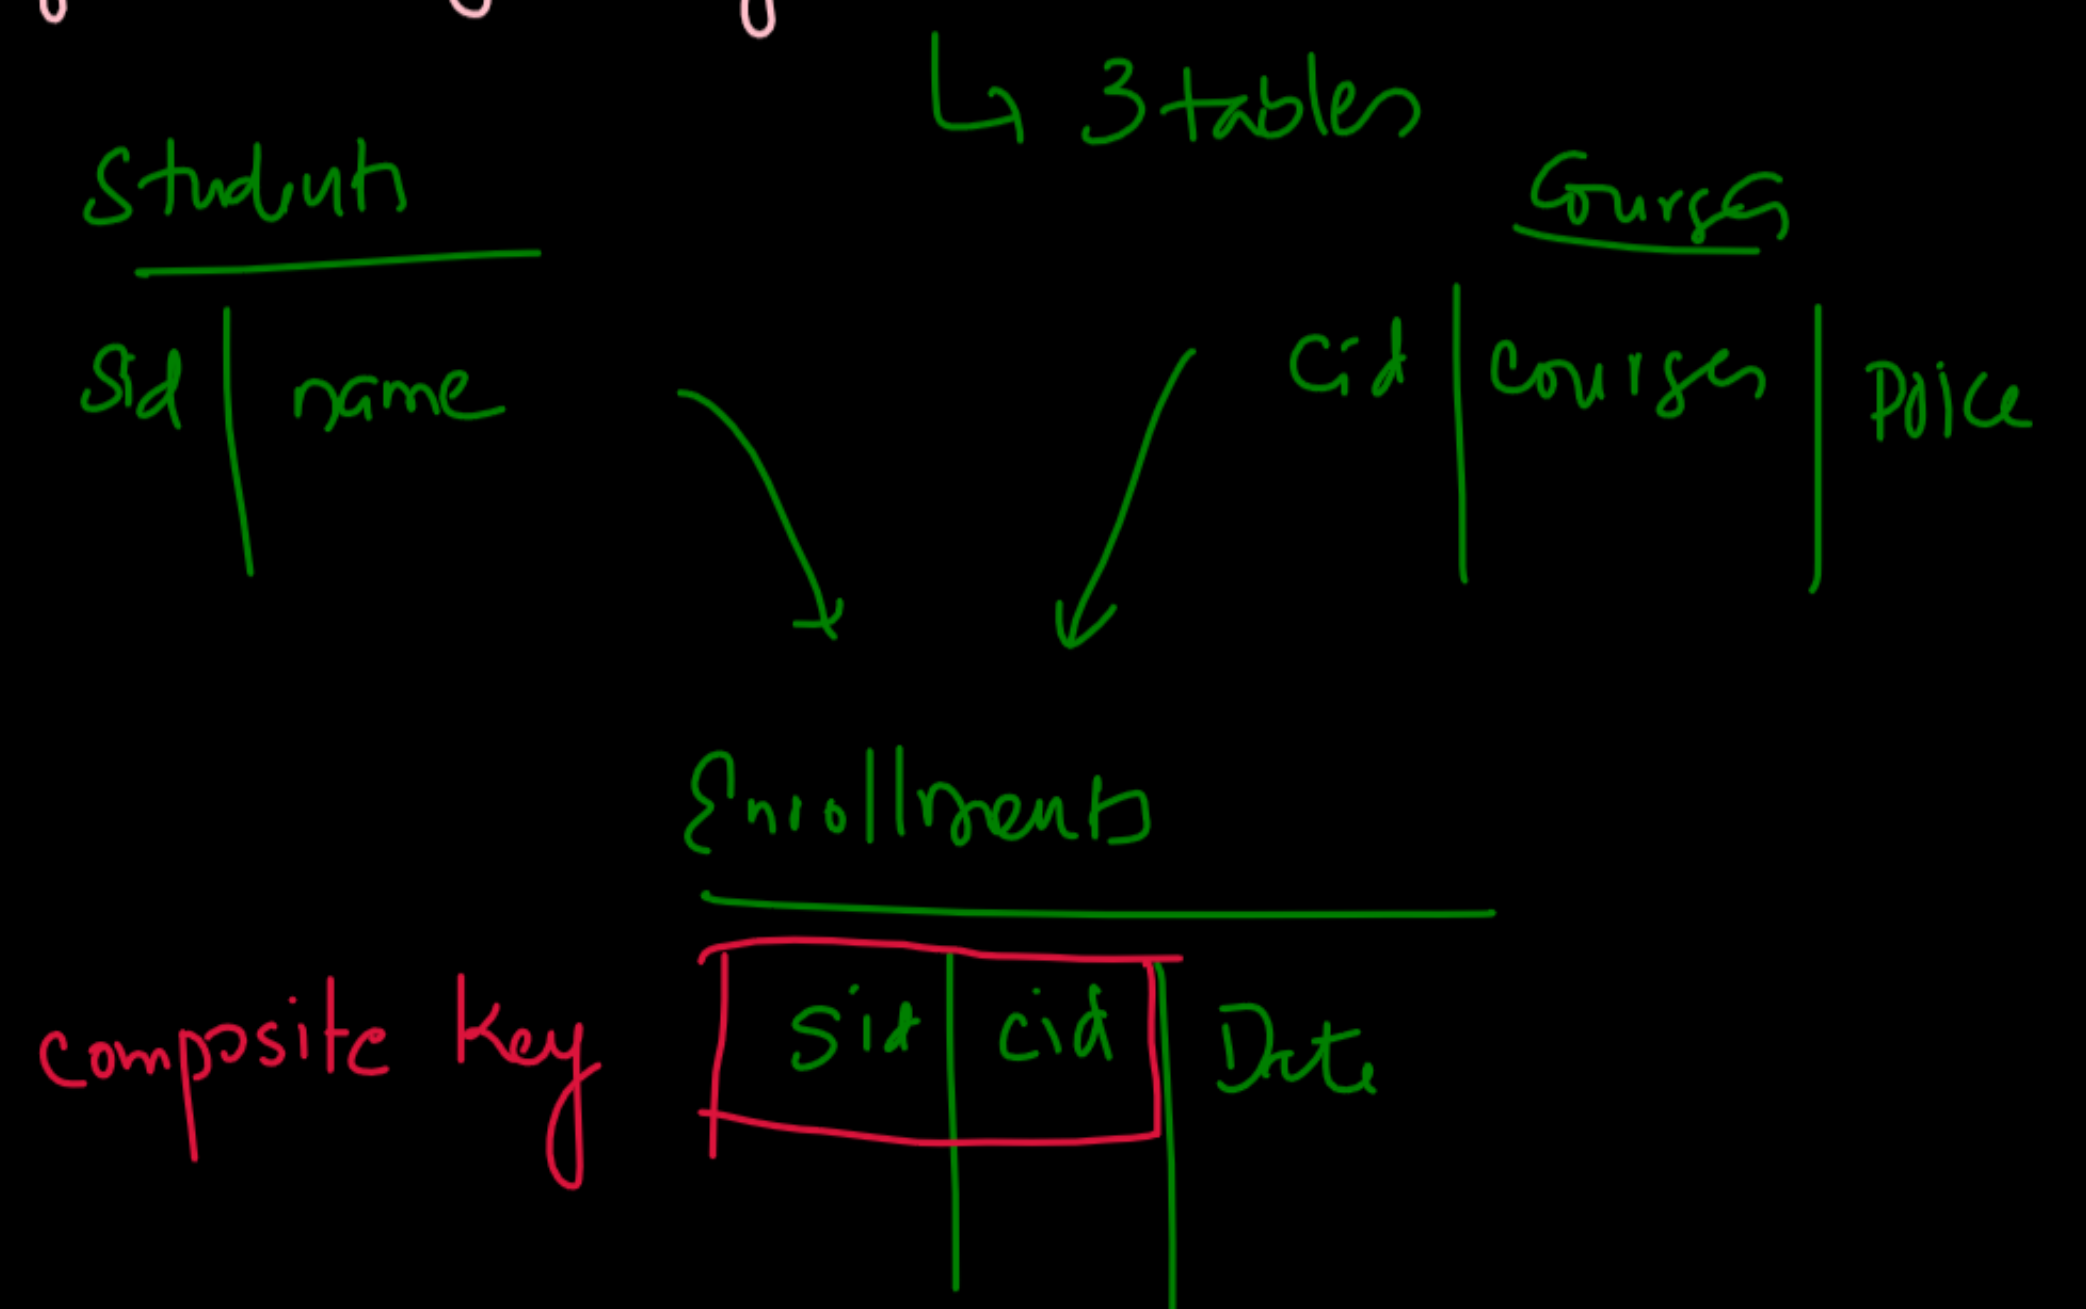 ↳ 3 tables
Students
Courses
Sid | name
Cid | courses | Price
Enrollments
Composite Key
Sid | cid | Date